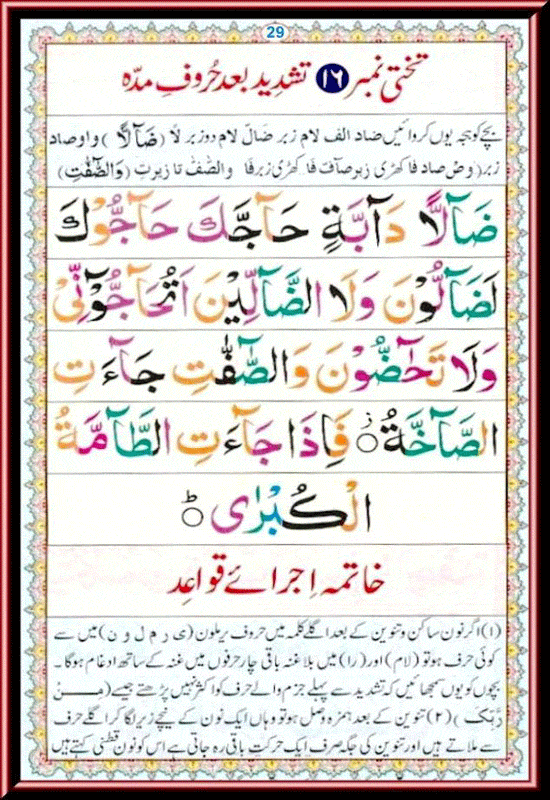 29
تختی نمبر ۱۶ تشدید بعد حُروفِ مدّہ
بچے کو ہجہ یوں کروائیں ضاد الف لام زبر ضَالّ لام دو زبر لًا (ضَآلًّا) واو صاد
زبر (وَصّ صاد فا کھڑی زبر صٰفّ فا کھڑی زبر فٰا والصّٰفّٰ تا زیر تِ (وَالصّٰٓفّٰتِ)
ضَآلًّا دَآبَّةٍ حَآجَّكَ حَآجُّوْكَ
لَضَآلُّوْنَ وَلَا الضَّآلِّيْنَ اَتُحَآجُّوْٓنِّيْ
وَلَا تَحٰٓضُّوْنَ وَالصّٰٓفّٰتِ جَآءَتِ
الصَّآخَّةُ فَاِذَا جَآءَتِ الطَّآمَّةُ
الْكُبْرٰى ط
خاتمہ اِجرائے قواعِد
(۱) اگر نون ساکن و تنوین کے بعد اگلے کلمہ میں حروف یرملون (ی ر م ل و ن) میں سے
کوئی حرف ہو تو (لام) اور (را) میں بلا غنہ باقی چار حرفوں میں غنہ کے ساتھ ادغام ہوگا۔
بچوں کو یوں سمجھائیں کہ تشدید سے پہلے جزم والے حرف کو اکثر نہیں پڑھتے جیسے (مِنْ
رَّبِّكَ) (۲) تنوین کے بعد ہمزہ وصل ہو تو وہاں ایک نون کے نیچے زیر لگا کر اگلے حرف
سے ملاتے ہیں اور تنوین کی جگہ صرف ایک حرکت باقی رہ جاتی ہے اس کو نون قطنی کہتے ہیں